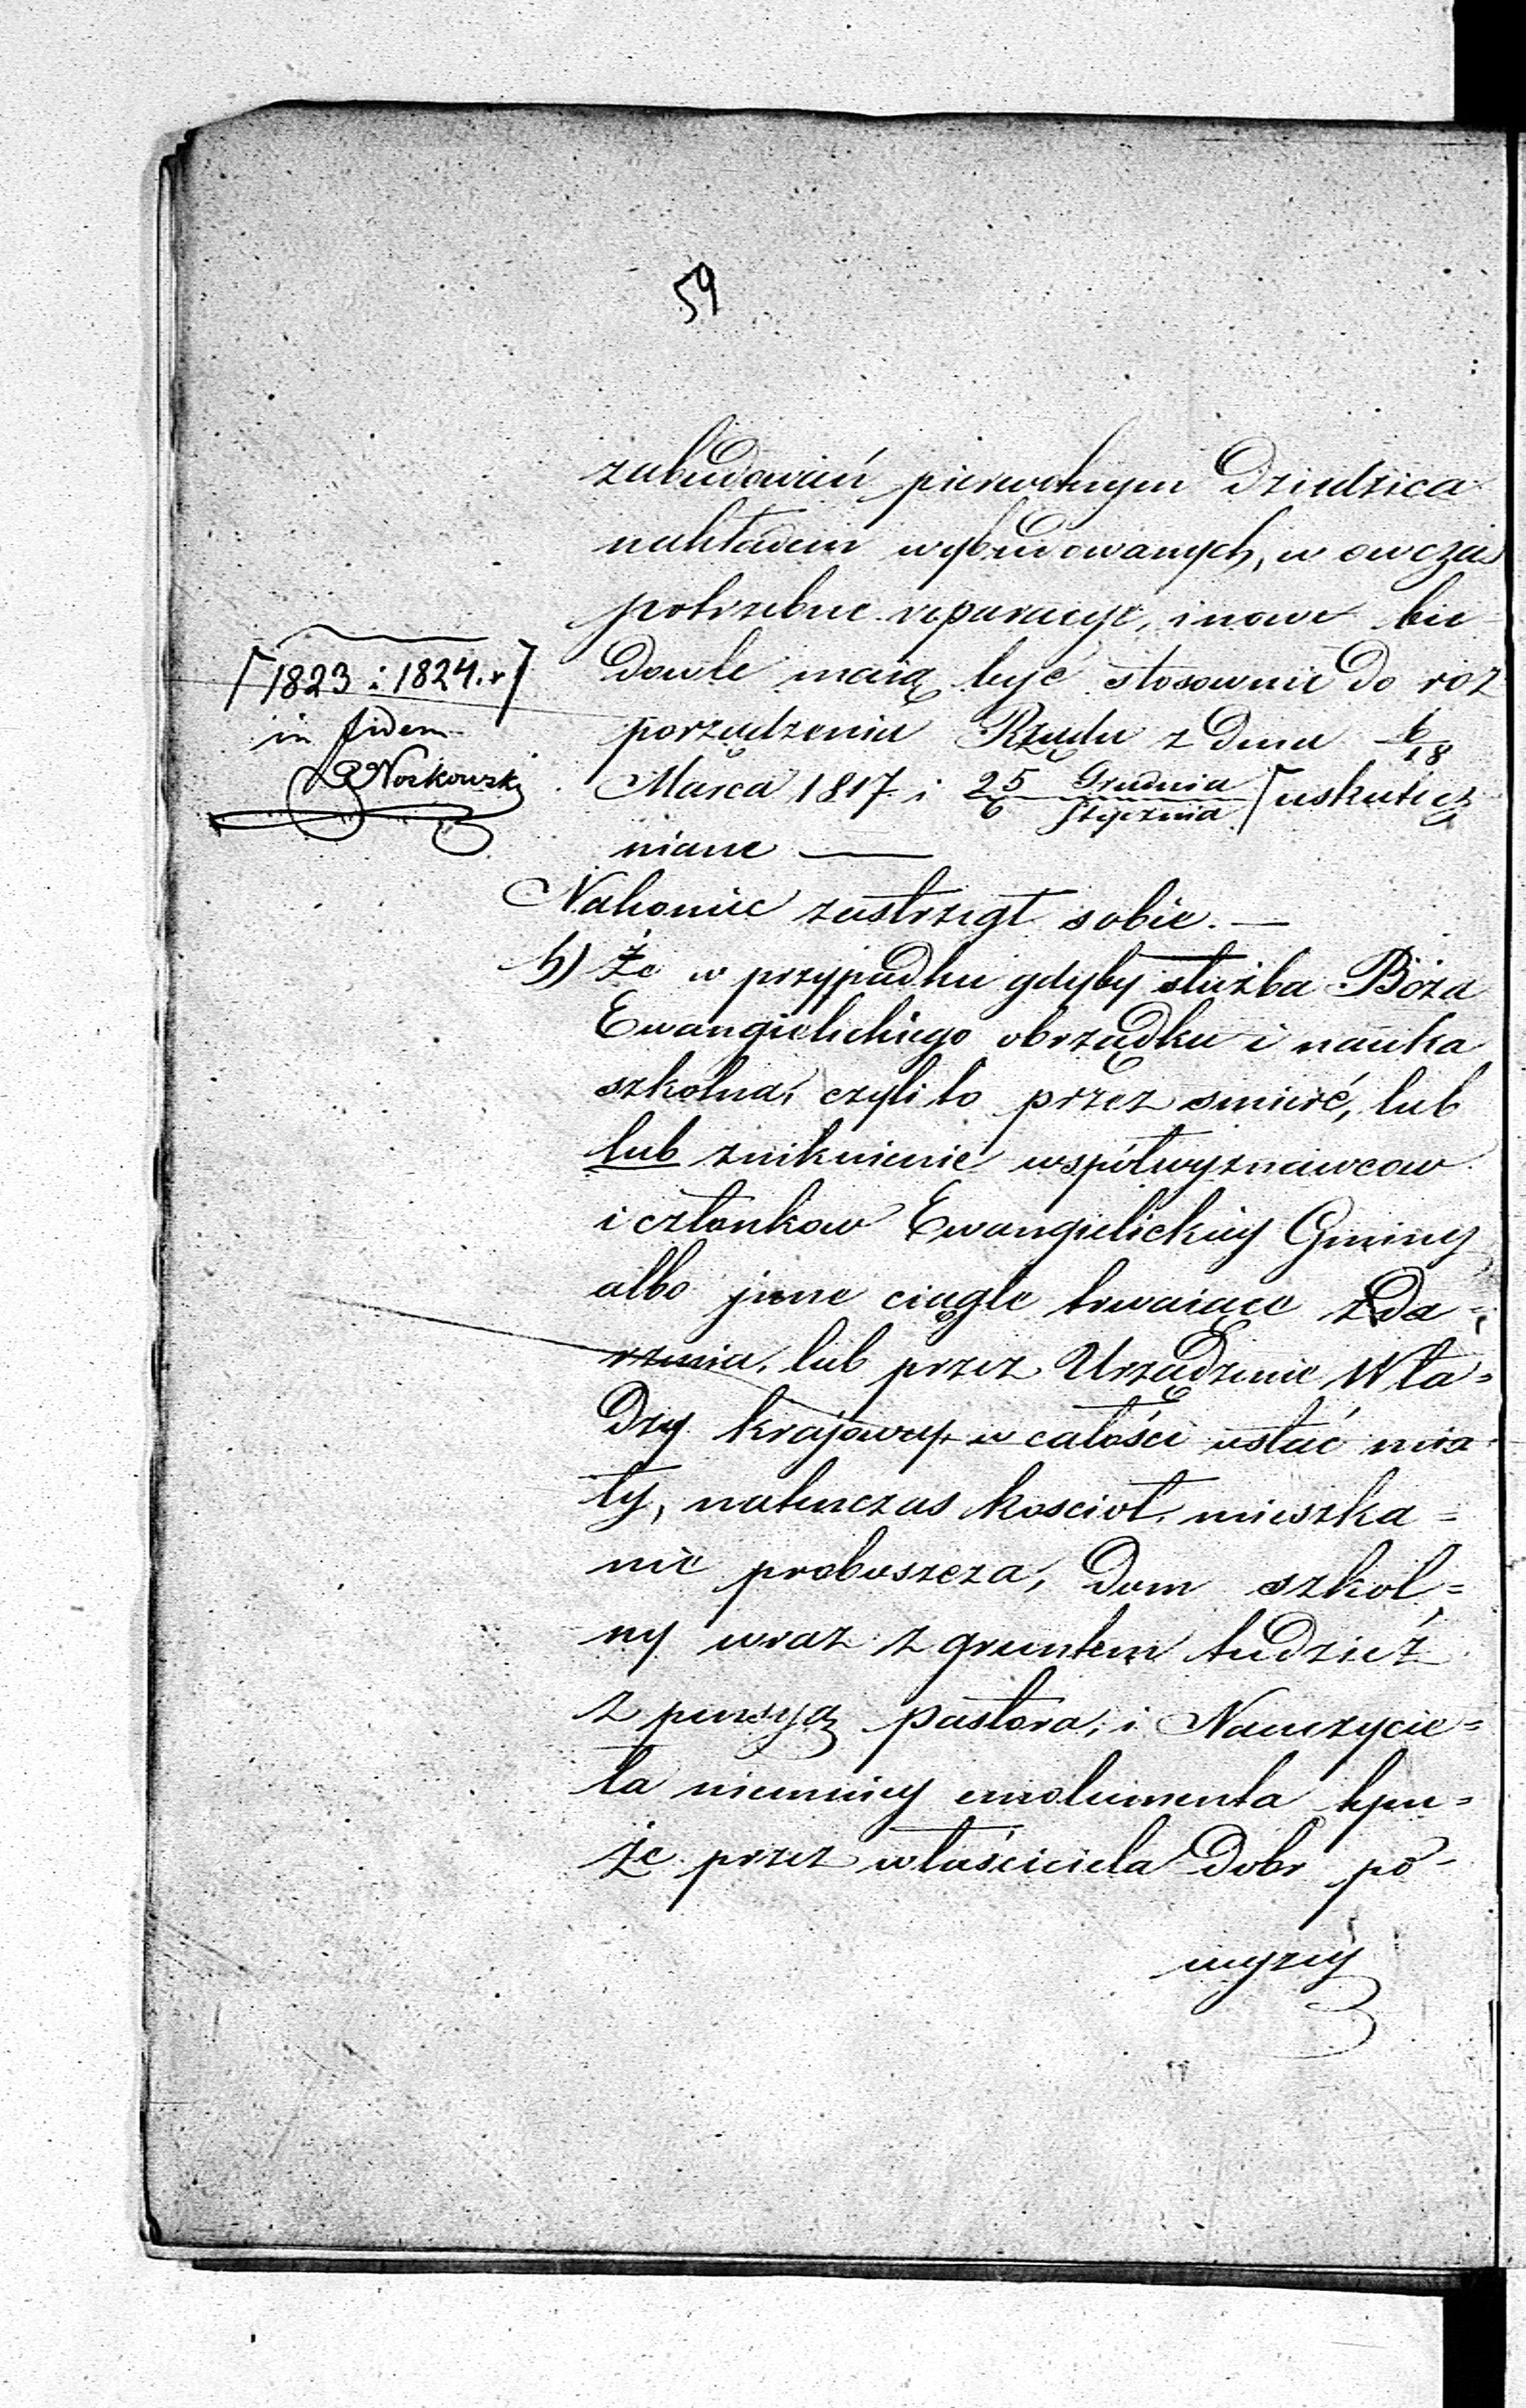 59
zabudowań pierwotnym Dziedzica
nakładem wybudowanych, w owczas
potrzebne reparacye, i nowe bu-
dowle maią być stosownie do roz
porządzenia Rządu z dnia 6/18
Marca 1817 i 25 Grudnia/6 Stycznia ⌈uskutecz
niane —
⌈1823 i 1824. r⌉
in fidem
Noskowski
Nakoniec zastrzegł sobie. —
h) Że w przypadku gdyby służba Boża
Ewangielickiego obrządku i nauka
szkolna, czyli to przez smierć, lub
lub zniknienie współwyznawcow
i członkow Ewangielickiey Gminy
albo jnne ciągle trwaiące zda=
rzenia, lub przez Urządzenie Wła=
dzy krajowey w całości ustać mia
ły, natenczas kościoł, mieszka=
nie proboszcza, dom szkol=
ny wraz z gruntem tudzież
z pensyą pastora, i Nauczycie=
la niemniey emolumenta tym=
że przez właściciela dobr po-
wyżey